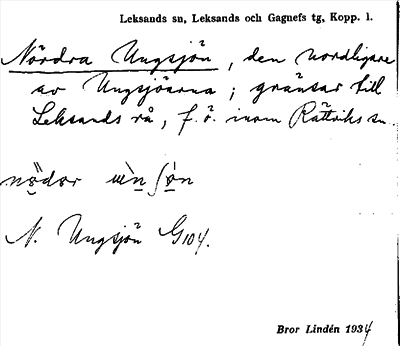 Leksands sn, Leksands och Gagnefs tg, Kopp. l.
Nördra Ungsjön, den nordligare
av Ungsjöarna; gränsar till
Leksands rå, f.ö. inom Rättviks sn.
N. Ungsjön G104.
Bror Lindén 1934